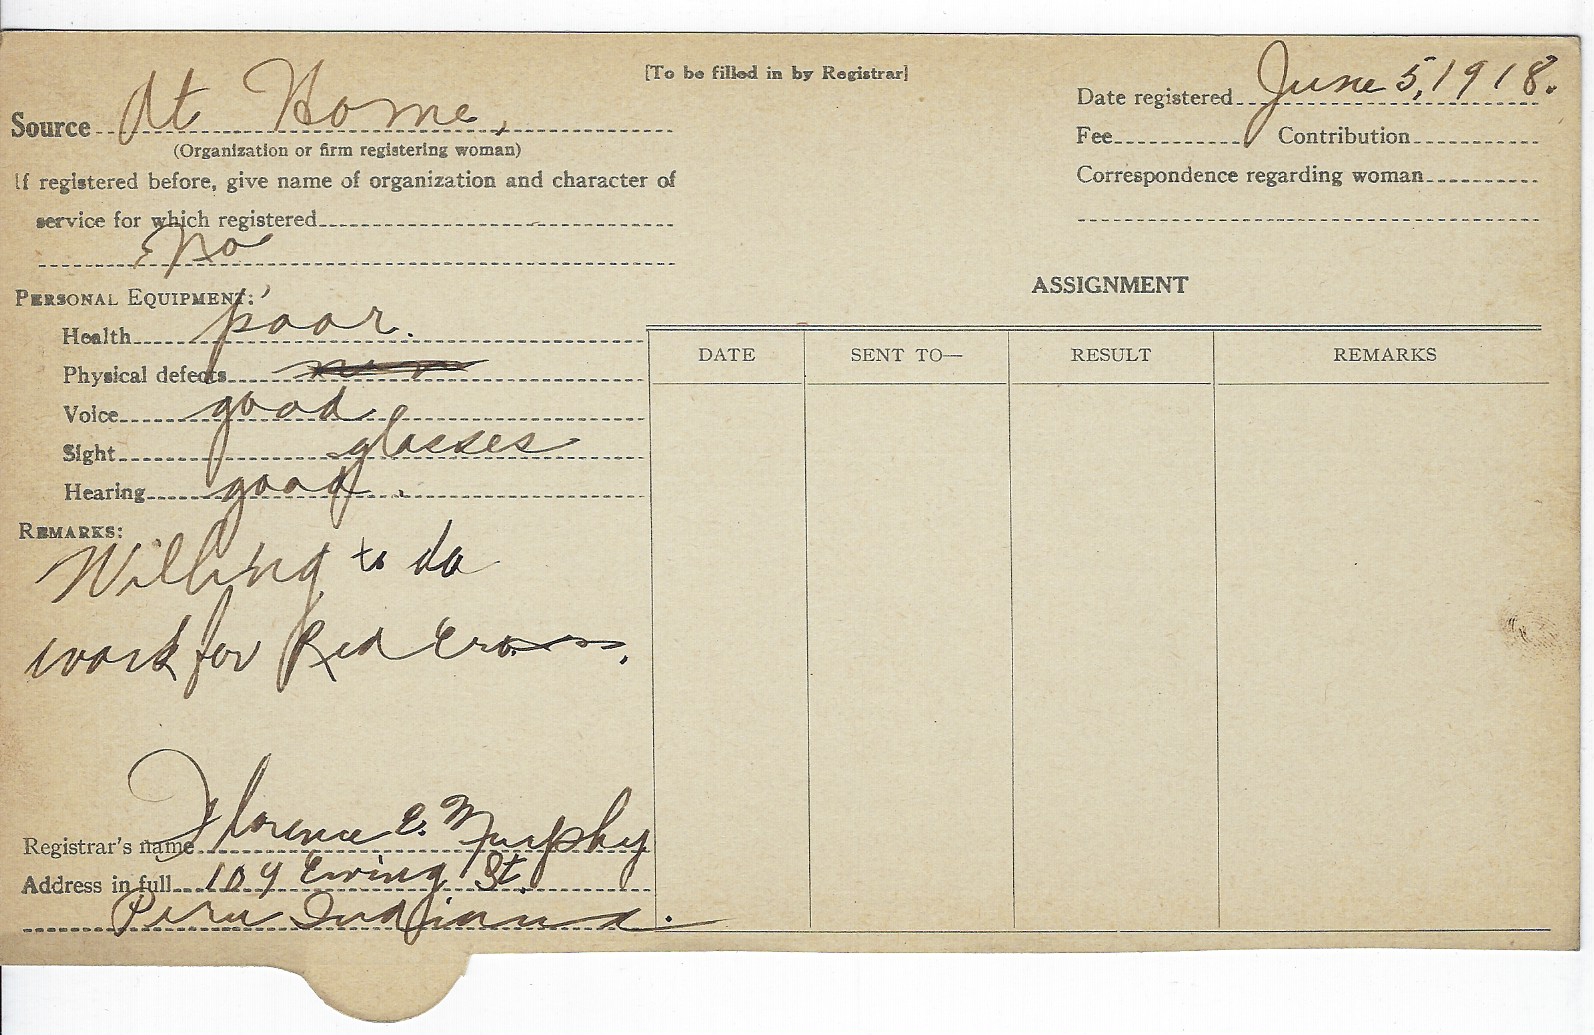 [To be filled in by Registrar]
Source At Home,
(Organization or firm registering woman)
If registered before, give name of organization and character of
service for which registered
No
Date registered June 5, 1918.
Fee Contribution
Correspondence regarding woman
PERSONAL EQUIPMENT:
Health poor.
Physical defects
Voice good
Sight glasses
Hearing good.
REMARKS:
Willing to do
work for Red Cross.
Registrar's name Florence E. Murphy
Address in full 109 Ewing St.
Peru Indiana.
ASSIGNMENT
DATE SENT TO— RESULT REMARKS